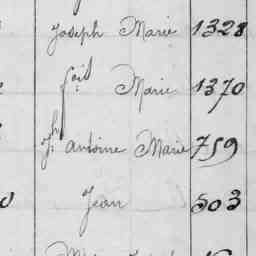 Joseph Marie 1328
fçois Marie 1370
Jh Antoine Marie 759
Jean 503